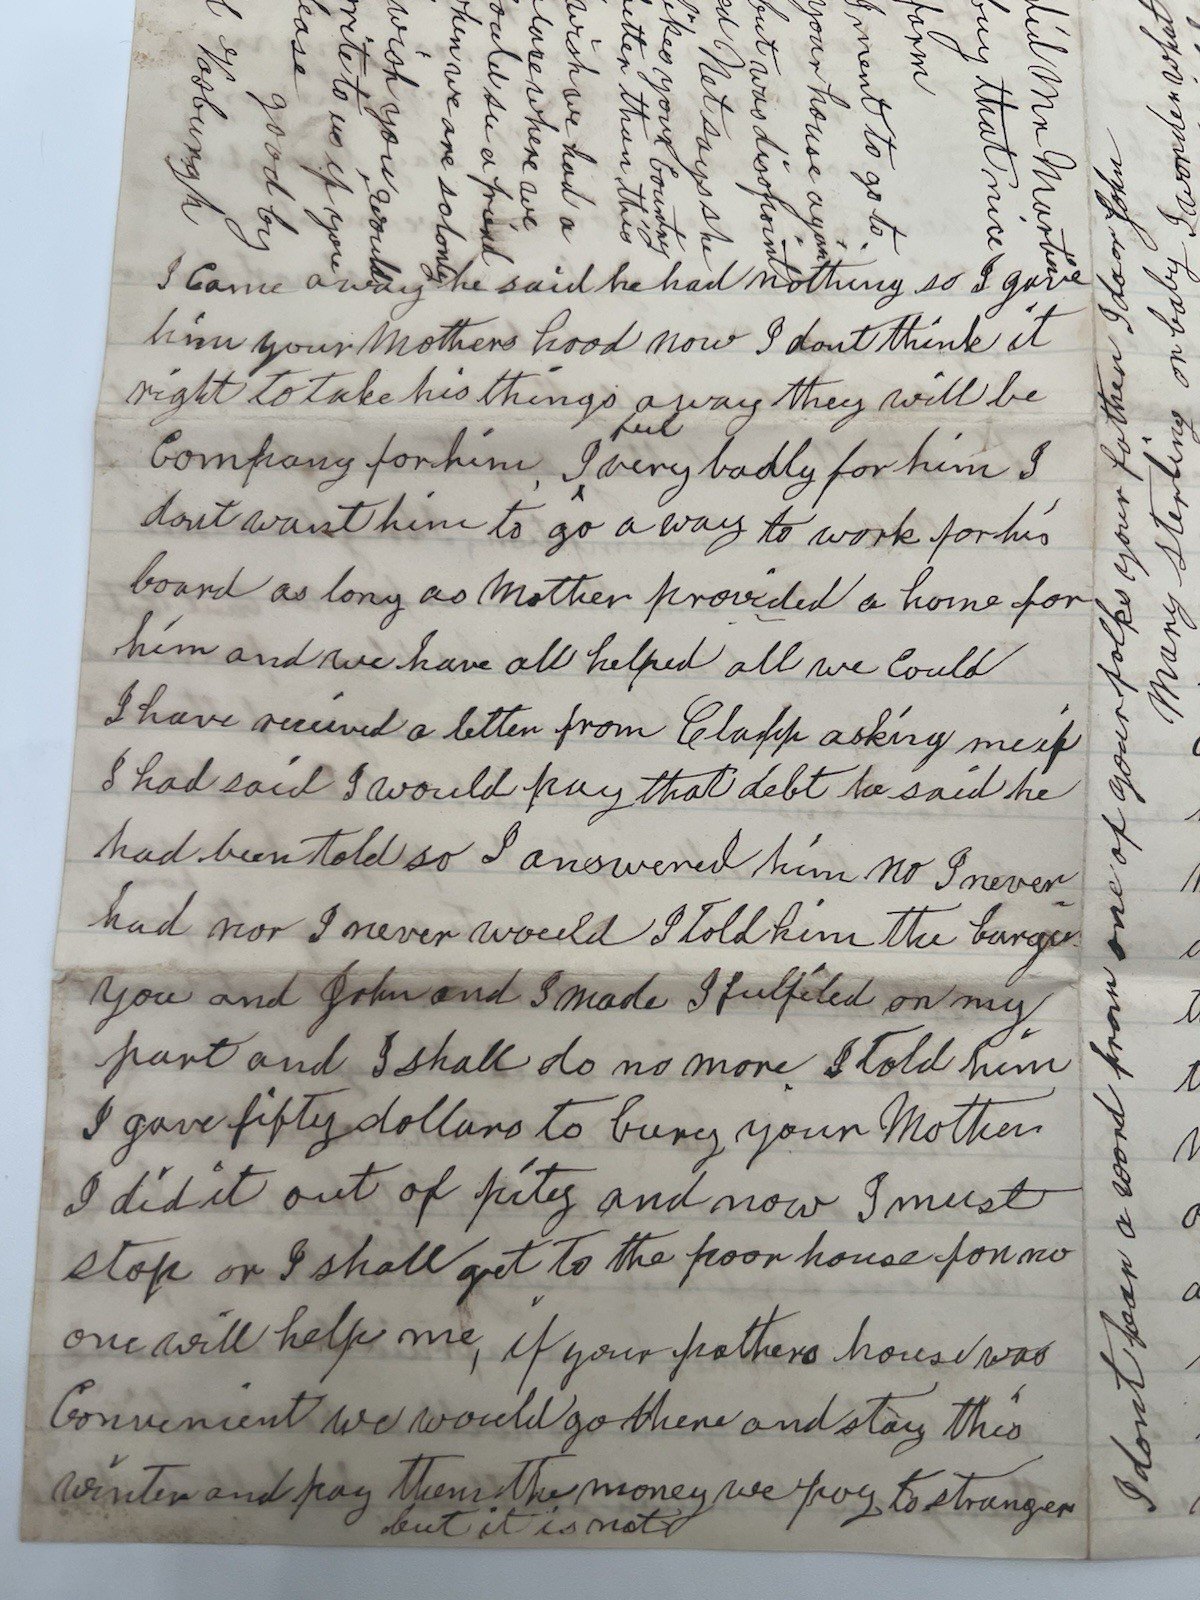 did Mr Martin
buy that nice
farm
I ment to go to
your house again
but was disapoint
ed Nat says she
likes your Country
better than this
wish we had a
place where we
could su a friend
when we are so lonly
wish you would
write to us if you
please
good by
Vosburgh
I Came away he said he had nothing so I gave
him your Mothers hood now I dont think it
right to take his things away they will be
Company for him, I feel very badly for him I
dont want him to go a way to work for his
board as long as Mother provided a home for
him and we have all helped all we Could
I have received a letter from Clapp asking me if
I had said I would pay that debt he said he
had been told so I answered him no I never
had nor I never would I told him the barge
you and John and I made I fulfiled on my
part and I shall do no more I told him
I gave fifty dollars to bury your Mother
I did it out of pity and now I must
stop or I shall get to the poor house for no
one will help me, if your fathers house was
Convenient we would go there and stay this
winter and pay them the money we pay to stranger
but it is not
I dont hear a word from one of your folks your father Idaor John
Mary sterling or baby I wonder what